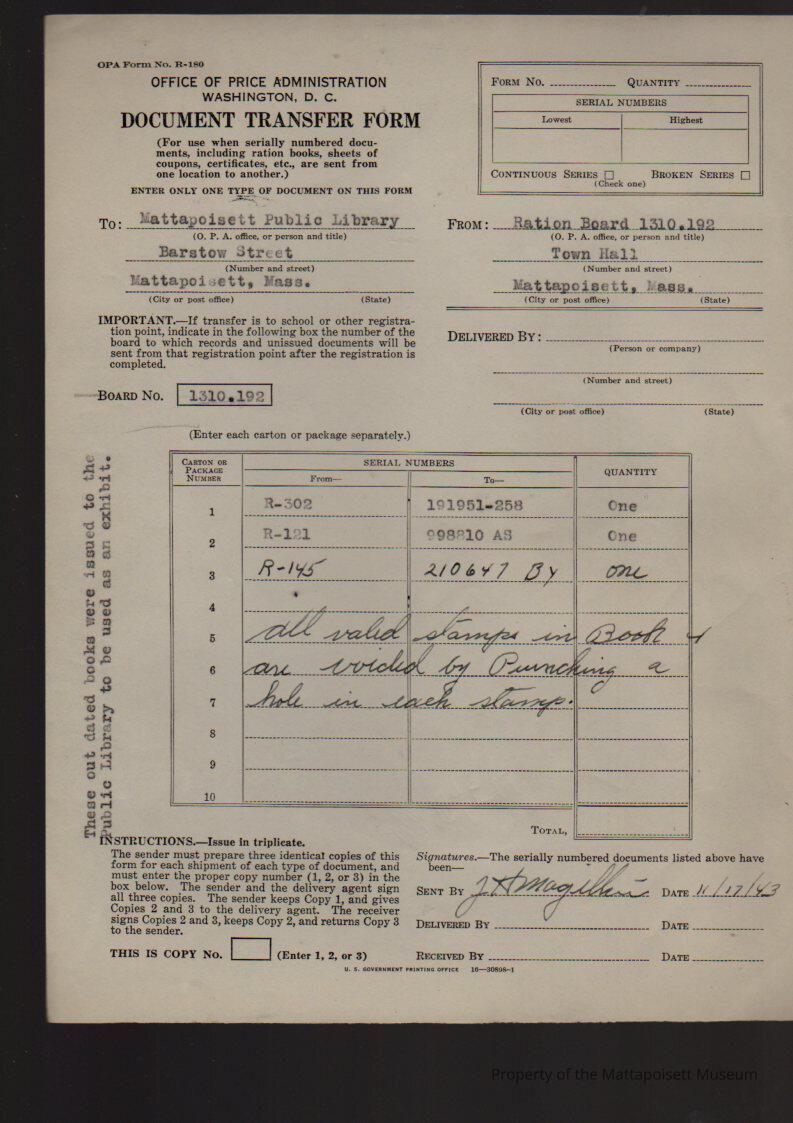 OPA Form No. R-180
OFFICE OF PRICE ADMINISTRATION
WASHINGTON, D. C.
DOCUMENT TRANSFER FORM
(For use when serially numbered docu-
ments, including ration books, sheets of
coupons, certificates, etc., are sent from
one location to another.)
ENTER ONLY ONE TYPE OF DOCUMENT ON THIS FORM
FORM NO. QUANTITY
SERIAL NUMBERS
Lowest Highest
CONTINUOUS SERIES BROKEN SERIES
(Check one)
TO: Mattapoisett Public Library
(O. P. A. office, or person and title)
Barstow Street
(Number and street)
Mattapoisett, Mass.
(City or post office) (State)
FROM: Ration Board 1310.192
(O. P. A. office, or person and title)
Town Hall
(Number and street)
Mattapoisett, Mass.
(City or post office) (State)
IMPORTANT.—If transfer is to school or other registra-
tion point, indicate in the following box the number of the
board to which records and unissued documents will be
sent from that registration point after the registration is
completed.
DELIVERED BY:
(Person or company)
(Number and street)
(City or post office) (State)
BOARD NO. 1310.192
(Enter each carton or package separately.)
CARTON OR
PACKAGE
NUMBER
SERIAL NUMBERS
From— To—
QUANTITY
1 R-302 191951-258 One
2 R-121 998810 AS One
3 R-145 210647 By one
4
5 all valid stamps in Book 4
6 are voided by Punching a
7 hole in each stamp.
8
9
10
TOTAL,
These out dated books were issued to the
Public Library to be used as an exhibit.
INSTRUCTIONS.—Issue in triplicate.
The sender must prepare three identical copies of this
form for each shipment of each type of document, and
must enter the proper copy number (1, 2, or 3) in the
box below. The sender and the delivery agent sign
all three copies. The sender keeps Copy 1, and gives
Copies 2 and 3 to the delivery agent. The receiver
signs Copies 2 and 3, keeps Copy 2, and returns Copy 3
to the sender.
THIS IS COPY NO. (Enter 1, 2, or 3)
Signatures.—The serially numbered documents listed above have
been—
SENT BY DATE 11/17/43
DELIVERED BY DATE
RECEIVED BY DATE
U. S. GOVERNMENT PRINTING OFFICE 16—30898-1
Property of the Mattapoisett Museum